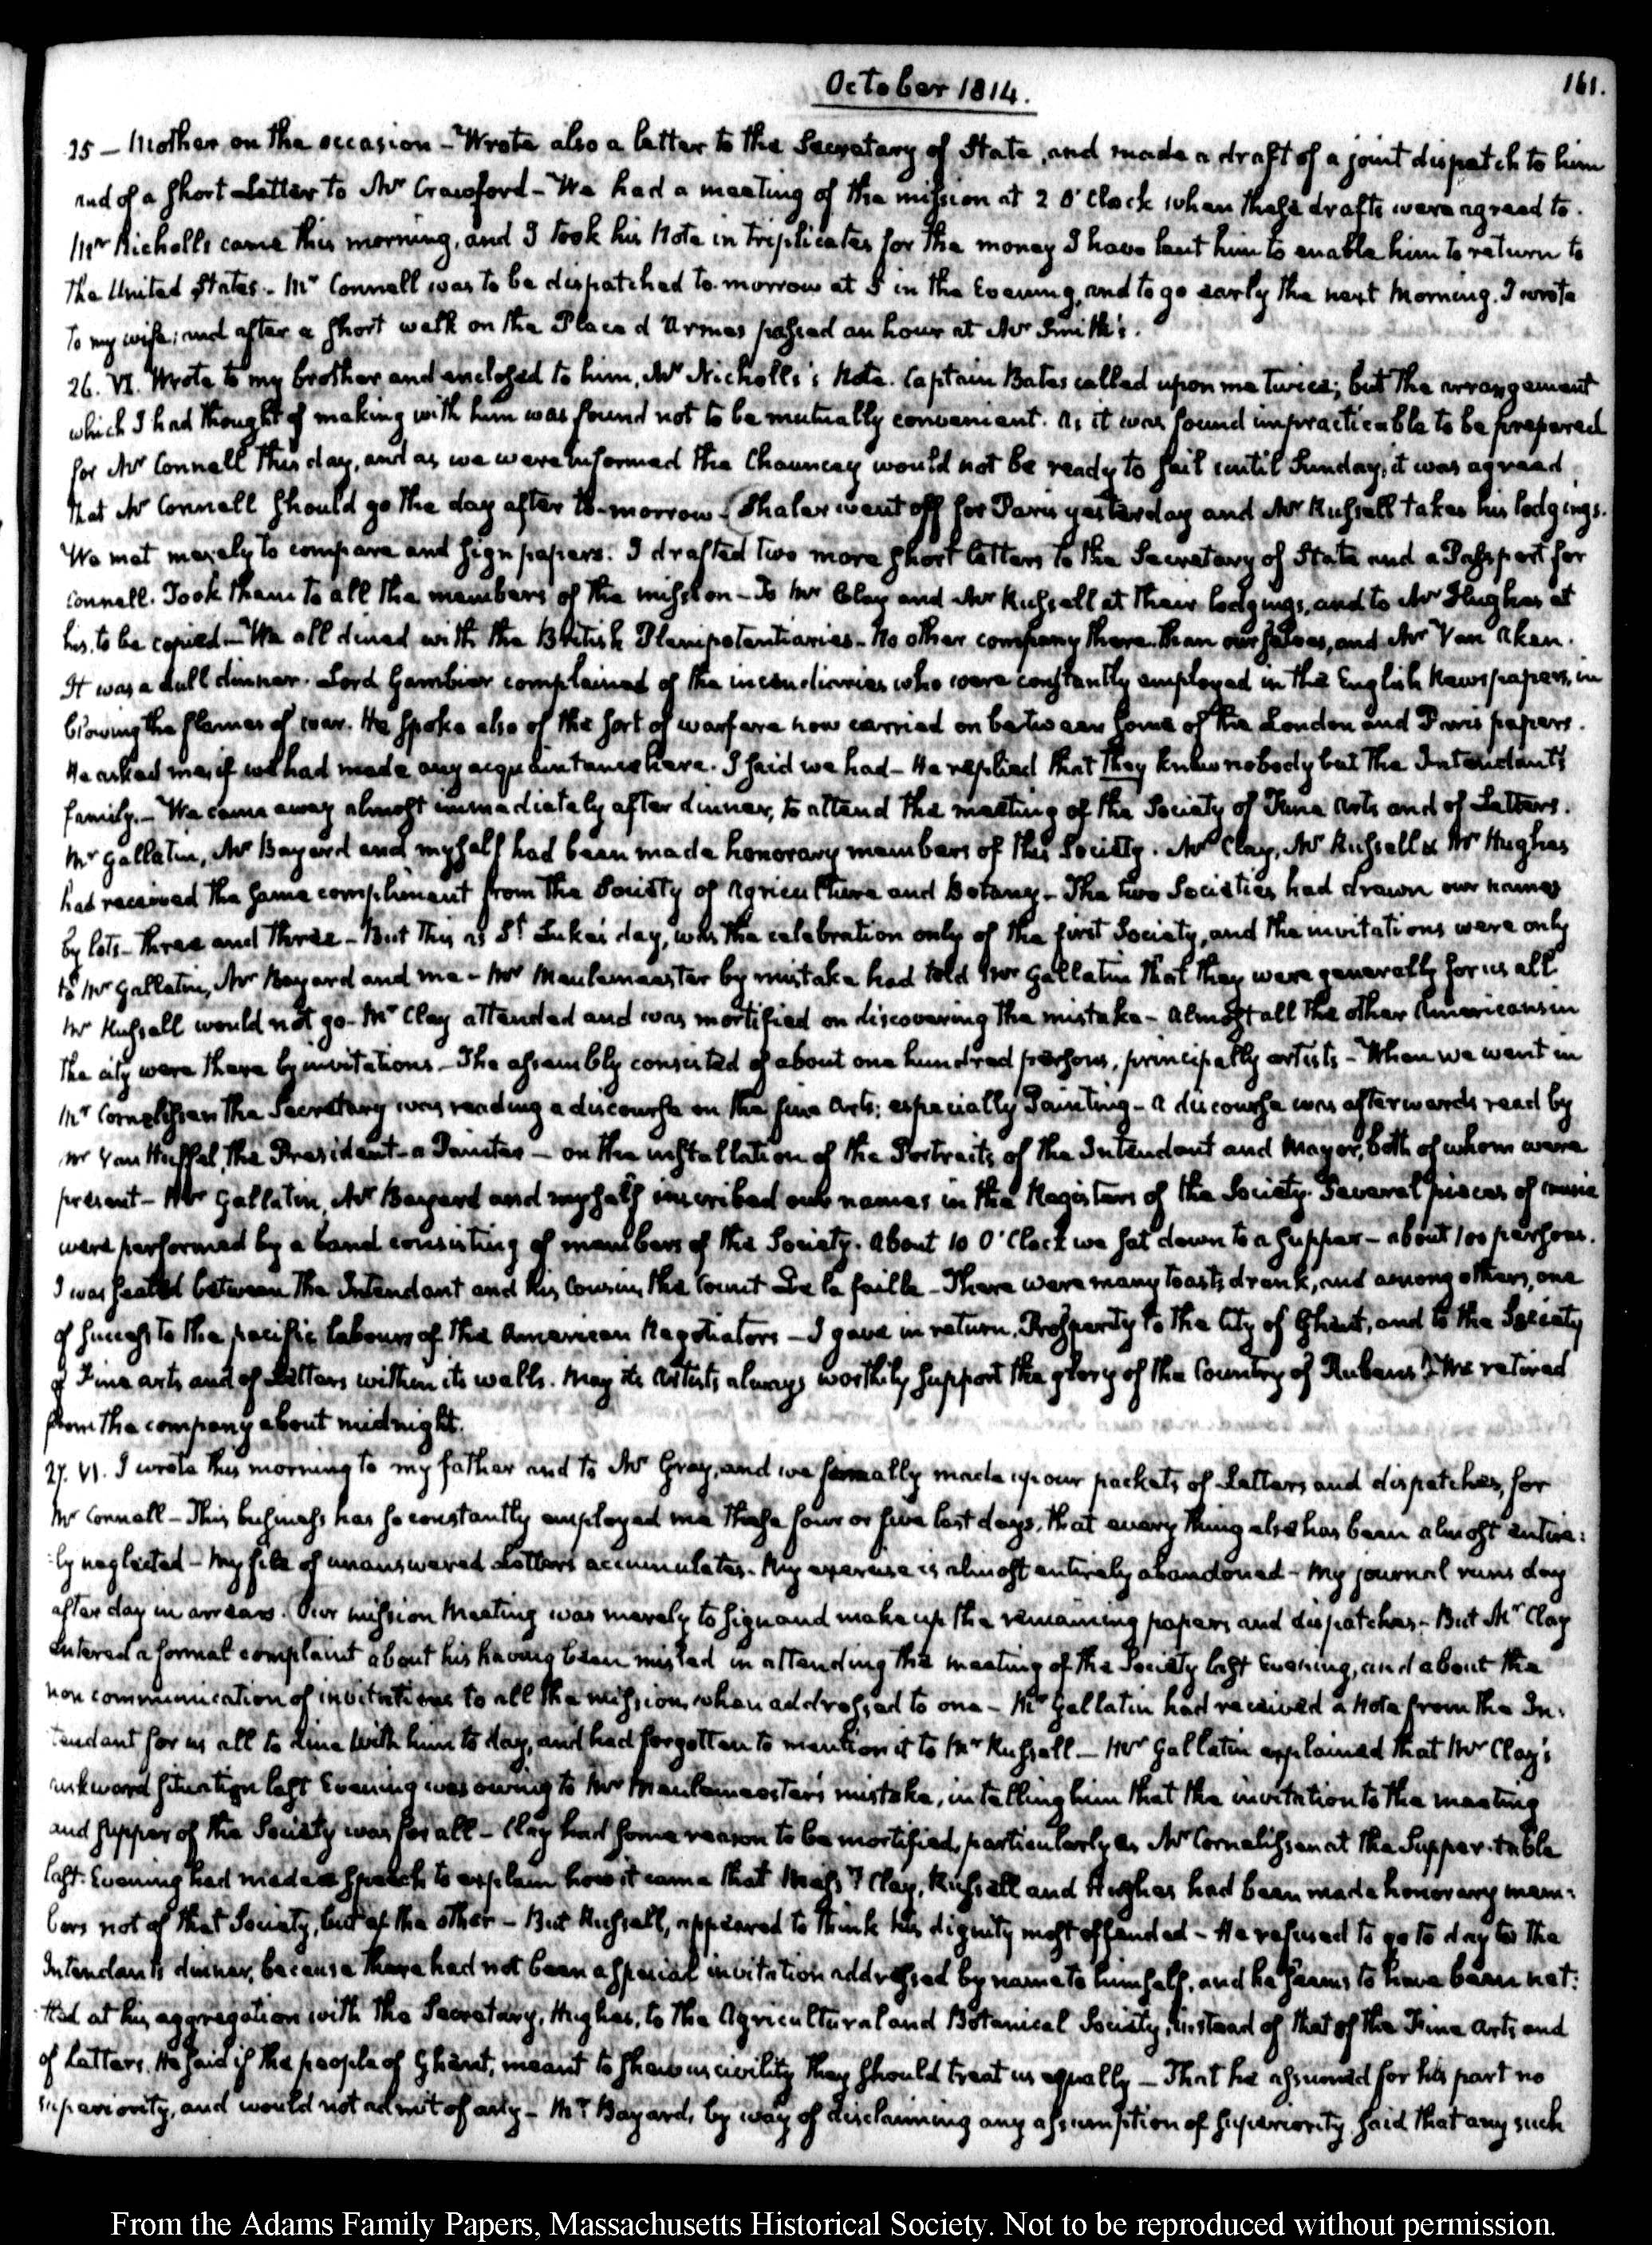 October 1814.
161.
25 — Mother on the occasion — Wrote also a letter to the Secretary of State, and made a draft of a joint dispatch to him
and of a short Letter to Mr Crawford — We had a meeting of the mission at 2 O'Clock when these drafts were agreed to.
Mr Nicholls came this morning, and I took his Note in triplicates for the money I have lent him to enable him to return to
the United States. Mr Connell was to be dispatched to-morrow at in the Evening, and to go early the next Morning. I wrote
to my wife; and after a short walk on the Place d'Armes passed an hour at Mr Smith's.
26. VI. Wrote to my brother and enclosed to him, Mr Nicholls's Note. Captain Bates called upon me twice; but the arrangement
which I had thought of making with him was found not to be mutually convenient. As it was found impracticable to be prepared
for Mr Connell this day, and as we were informed the Chauncey would not be ready to sail until Sunday, it was agreed
that Mr Connell should go the day after to-morrow. Shaler went off for Paris yesterday and Mr Russell takes his lodgings.
We met merely to compare and sign papers. I drafted two more short letters to the Secretary of State and a Passport for
Connell. Took them to all the members of the mission — To Mr Clay and Mr Russell at their lodgings, and to Mr Hughes at
his, to be copied — We all dined with the British Plenipotentiaries — No other company there than ourselves, and Mr Van Aken.
It was a dull dinner. Lord Gambier complained of the incendiaries who were constantly employed in the English Newspapers, in
blowing the flames of war. He spoke also of the sort of warfare now carried on between some of the London and Paris papers.
He asked me, if we had made any acquaintance here. I said we had — He replied that they knew nobody but the Intendant's
family. — We came away almost immediately after dinner, to attend the meeting of the Society of Fine Arts and of Letters.
Mr Gallatin, Mr Bayard and myself had been made honorary members of this Society. Mr Clay, Mr Russell & Mr Hughes
had received the same compliment from the Society of Agriculture and Botany — The two Societies had drawn our names
by lots — three and three — But this as St Luke's day, was the celebration only of the first Society, and the invitations were only
to Mr Gallatin, Mr Bayard and me — Mr Meulemeester by mistake had told Mr Gallatin that they were generally for us all
Mr Russell would not go — Mr Clay attended and was mortified on discovering the mistake — Almost all the other Americans in
the city were there by invitations — The assembly consisted of about one hundred persons, principally artists — When we went in
Mr Cornelissen the Secretary was reading a discourse on the fine Arts; especially Painting — A discourse was afterwards read by
Mr Van Huffel, the President — a Painter — on the installation of the Portraits of the Intendant and Mayor, both of whom were
present — Mr Gallatin, Mr Bayard and myself inscribed our names in the Registers of the Society. Several pieces of music
were performed by a band consisting of members of the Society. About 10 O'Clock we sat down to a supper — about 100 persons.
I was seated between the Intendant and his Cousin, the Count De la faille — There were many toasts drank, and among others, one
of success to the pacific labours of the American Negotiators — I gave in return, Prosperity to the City of Ghent, and to the Society
of Fine arts and of Letters within its walls. May its Artists always worthily support the glory of the Country of Rubens! — We retired
from the company about midnight.
27. VI. I wrote this morning to my father and to Mr Gray, and we finally made up our packets of Letters and dispatches, for
Mr Connell — This business has so constantly employed me these four or five last days, that every thing else has been almost entire:
:ly neglected — My file of unanswered Letters accumulates. My exercise is almost entirely abandoned — My journal runs day
after day in arrears. Our mission Meeting was merely to sign and make up the remaining papers and dispatches — But Mr Clay
entered a formal complaint about his having been misled in attending the meeting of the Society last Evening, and about the
non communication of invitations to all the mission, when addressed to one — Mr Gallatin had received a Note from the In:
:tendant for us all to dine with him to day, and had forgotten to mention it to Mr Russell — Mr Gallatin explained that Mr Clay's
awkward situation last Evening was owing to Mr Meulemeester's mistake, in telling him that the invitation to the meeting
and supper of the Society was for all — Clay had some reason to be mortified, particularly as Mr Cornelissen at the Supper-table
last Evening had made a speech to explain how it came that Messrs Clay, Russell and Hughes had been made honorary mem:
bers not of that Society, but of the other — But Russell, appeared to think his dignity most offended — He refused to go to day to the
Intendant's dinner, because there had not been a special invitation addressed by name to himself, and he seems to have been net:
:tled at his aggregation with the Secretary, Hughes, to the Agricultural and Botanical Society, instead of that of the Fine Arts and
of Letters. He said if the people of Ghent, meant to shew us civility they should treat us equally — That he assumed for his part no
superiority, and would not admit of any — Mr Bayard, by way of disclaiming any assumption of superiority said that any such
From the Adams Family Papers, Massachusetts Historical Society. Not to be reproduced without permission.